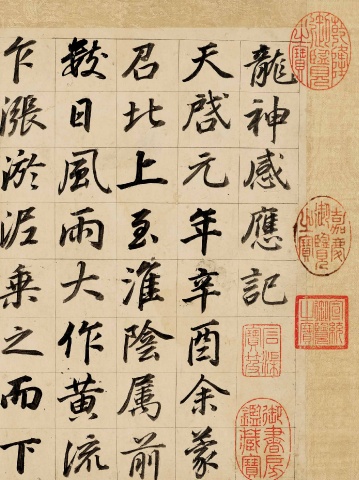 龍神感應記
天啓元年辛酉余蒙
召北上至淮陰属前
數日風雨大作黄流
乍漲淤泥乘之而下
乾隆御覽之寶
嘉慶御覽之寶
宣統御覽之寶
石渠寶笈
御書房鑑藏寶